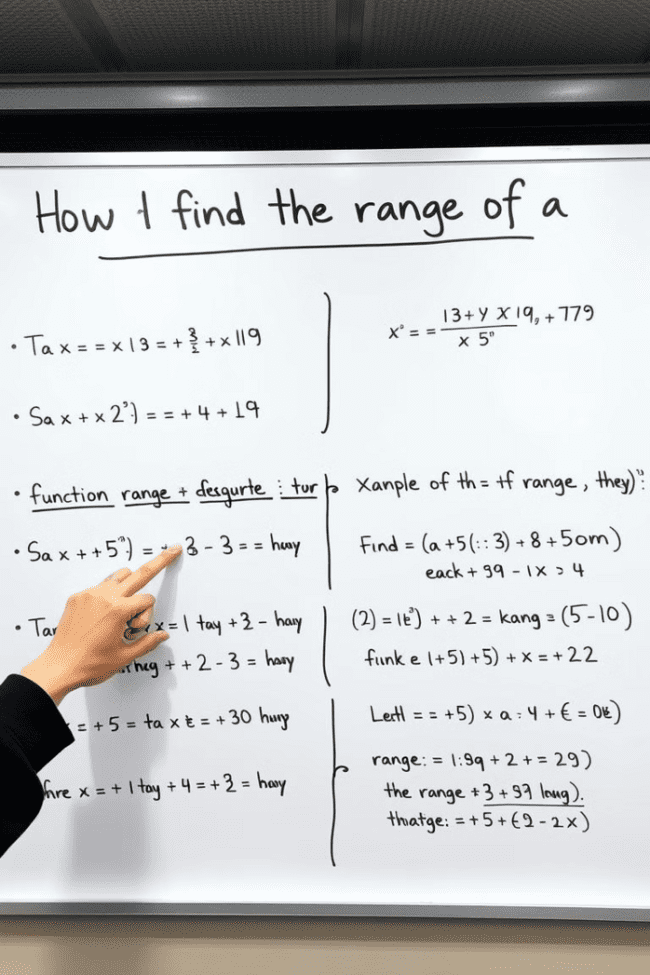 How I find the range of a
• Ta x = = x 13 = + 3/2 + x 119
• Sa x + x 2³) = = + 4 + 19
• function range + desgurte : tur
• Sa x + + 5³) = - 3 - 3 = = huuy
• Tar x = 1 tay + 3 - hasy
heg + + 2 - 3 = hasy
= + 5 = ta x t = + 30 hurg
hre x = + 1 tay + 4 = + 3 = hay
x° = = 13 + y X 19, + 779 / x 5°
Xanple of th = tf range , they)
Find = (a + 5(: : 3) + 8 + 5om)
eack + 99 - 1x > 4
(2) = 1t³) + + 2 = kang = (5 - 10)
funk e 1+5) +5) + x = + 22
Lertl = = +5) x a : 4 + € = 0t)
range: = 1:9q + 2 + = 29)
the range + 3 + 97 long).
thatge: = + 5 + (2 - 2x)